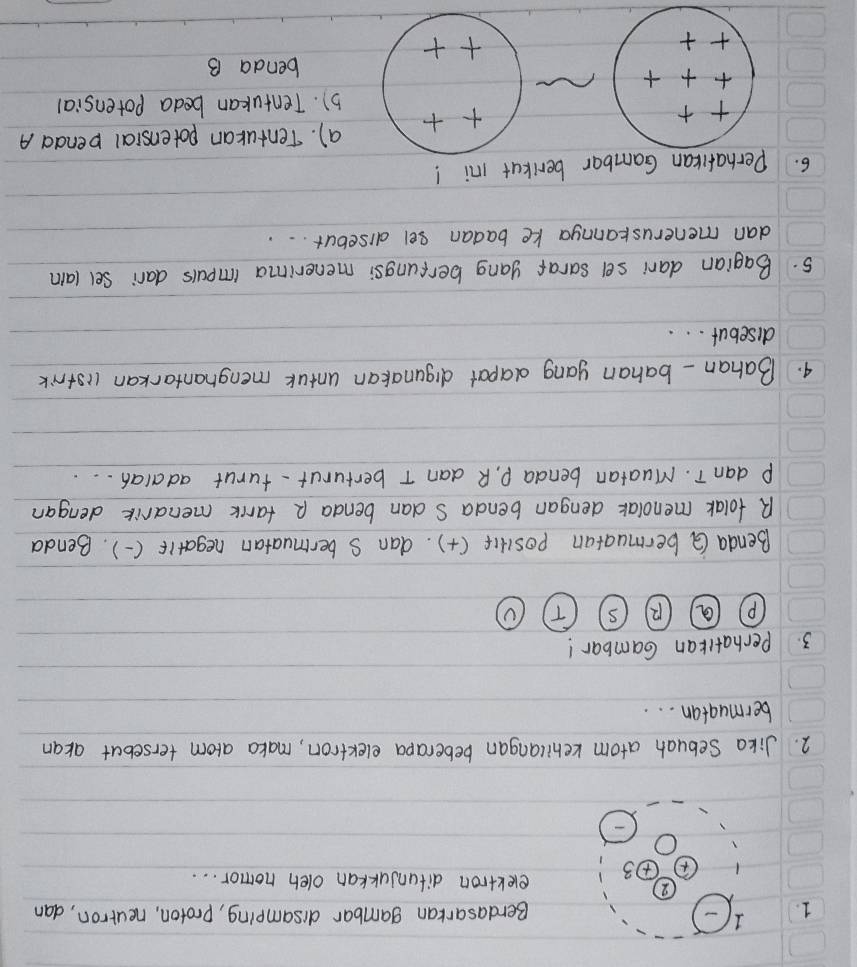 1. Berdasarkan gambar disamping, proton, neutron, dan
elektron ditunjukkan oleh nomor...
1 -
2
+ + 3
-
2. Jika Sebuah atom kehilangan beberapa elektron, maka atom tersebut akan
bermuatan ...
3. Perhatikan Gambar!
P Q R S T U
Benda Q bermuatan positif (+). dan S bermuatan negatif (-). Benda
R tolak menolak dengan benda S dan benda R tarik menarik dengan
P dan T. Muatan benda P, R dan T berturut - turut adalah ...
4. Bahan - bahan yang dapat digunakan untuk menghantarkan listrik
disebut ...
5. Bagian dari sel saraf yang berfungsi menerima impuls dari sel lain
dan meneruskannya ke badan sel disebut ...
6. Perhatikan Gambar berikut ini !
+ + + +
+ + +
+ + + +
a). Tentukan potensial benda A
b). Tentukan beda potensial
benda B